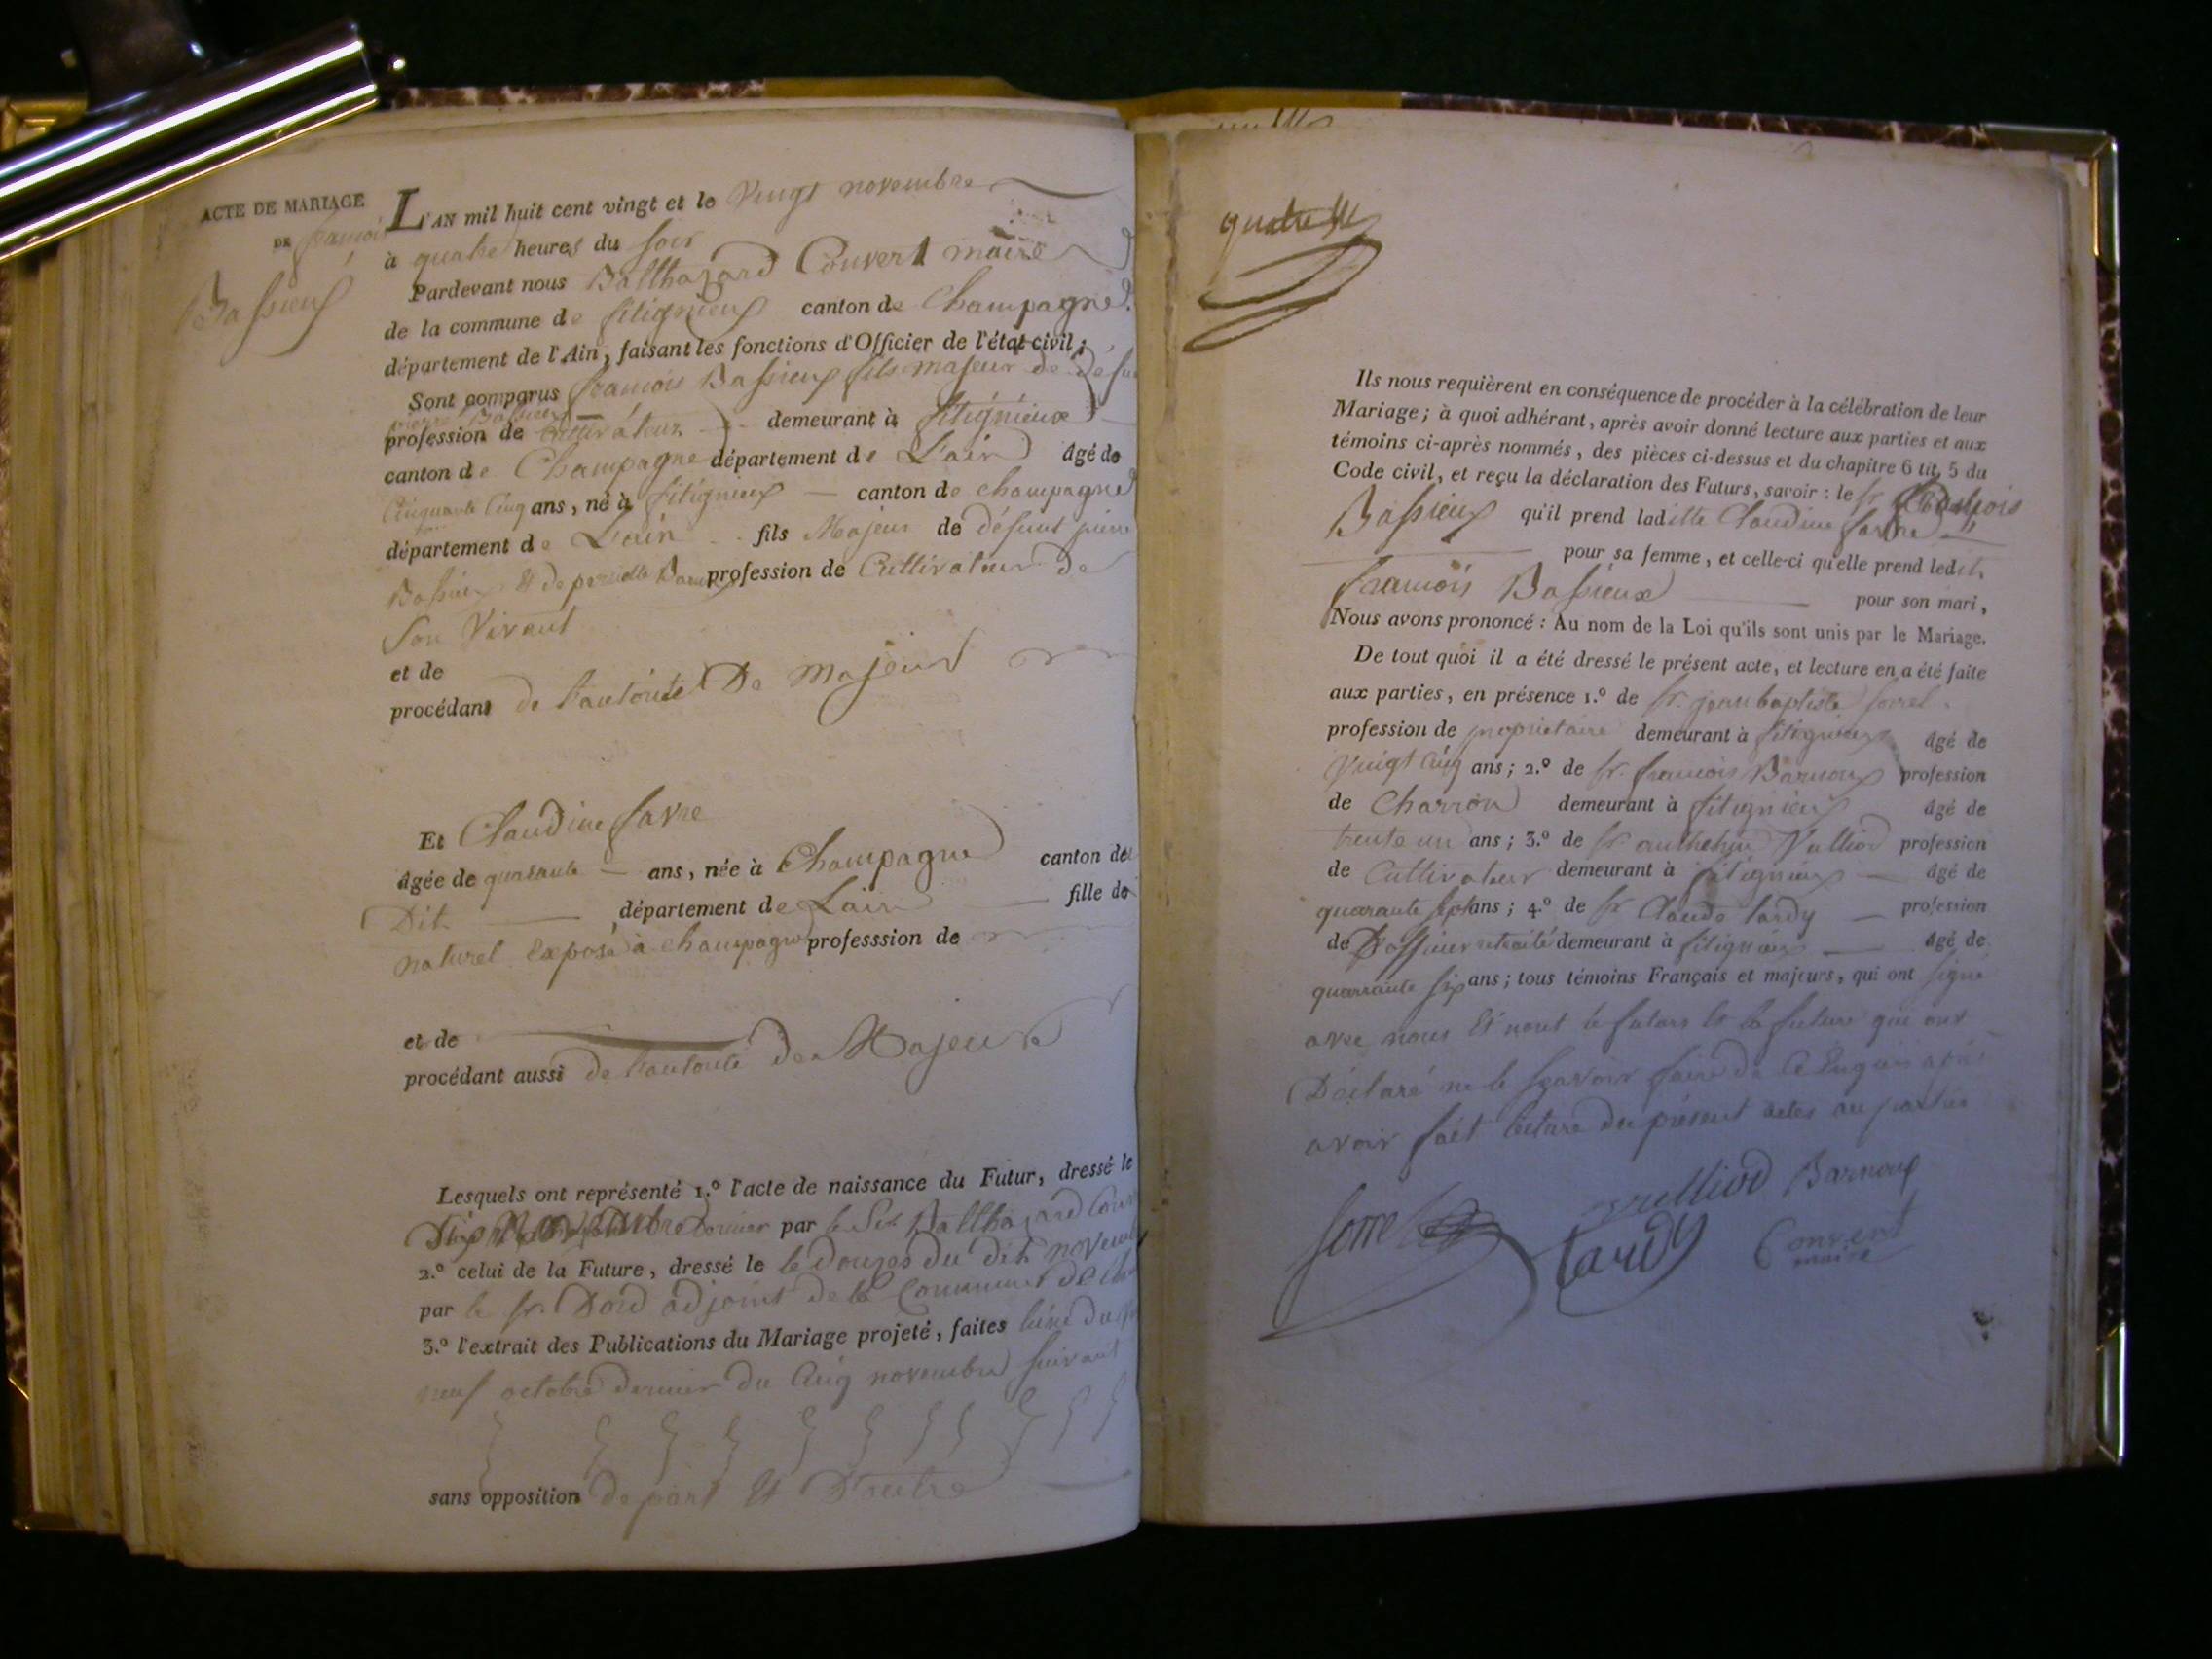 ACTE DE MARIAGE
DE françois
Bassieux
L'AN mil huit cent vingt et le Vingt novembre
à quatre heures du soir
Pardevant nous Balthazard Couvert maire
de la commune de fitignieux canton de Champagne
département de l'Ain, faisant les fonctions d'Officier de l'état civil;
Sont comparus francois Bassieux fils majeur de défun
pierre Bassieux
profession de Cultivateur demeurant à fitignieux
canton de Champagne département de L'ain âgé de
Cinquante Cinq ans, né à fitignieux canton de champagne
département de L'ain fils Majeur de défunt pierre
Bassieux Et de pernette profession de Cultivateur de
Son Vivant
et de
procédant de l'autorité De majeur
Et Claudine favre
âgée de quarante ans, née à Champagne canton de
Dit département de Lain fille de
naturel Exposé à champagne professsion de
et de
procédant aussi de l'autorité de Majeure
Lesquels ont représenté 1.º l'acte de naissance du Futur, dressé le
dernier par le Sr. Balthazard Couv
2.º celui de la Future, dressé le le douzes du dit novemb
par le sr. Dord adjoint de la Commune de
3.º l'extrait des Publications du Mariage projeté, faites
neuf octobre dernier du Cinq novembre suivant
sans opposition de part Et D'autre
quatre
Ils nous requièrent en conséquence de procéder à la célébration de leur
Mariage; à quoi adhérant, après avoir donné lecture aux parties et aux
témoins ci-après nommés, des pièces ci-dessus et du chapitre 6 tit. 5 du
Code civil, et reçu la déclaration des Futurs, savoir: le sr francois
Bassieux qu'il prend laditte Claudine favre
pour sa femme, et celle-ci qu'elle prend ledit
francois Bassieux pour son mari,
Nous avons prononcé: Au nom de la Loi qu'ils sont unis par le Mariage.
De tout quoi il a été dressé le présent acte, et lecture en a été faite
aux parties, en présence 1.º de sr. jean baptiste sorrel
profession de proprietaire demeurant à fitignieux âgé de
Vingt Cinq ans; 2.º de sr. francois Barnoux profession
de Charron demeurant à fitignieux âgé de
trente un ans; 3.º de sr anthelme Vulliod profession
de Cultivateur demeurant à fitignieux âgé de
quarante sept ans; 4.º de sr Claude tardy profession
de D'offisier retraité demeurant à fitignieux âgé de
quarante six ans; tous témoins Français et majeurs, qui ont signé
avec nous Et nont le futurs Et la future qui ont
Déclaré ne le sçavoir faire de Ce Enquis après
avoir fait lecture du présent actes au parties
sorrel vulliod Barnoux
tardy Couvert
maire